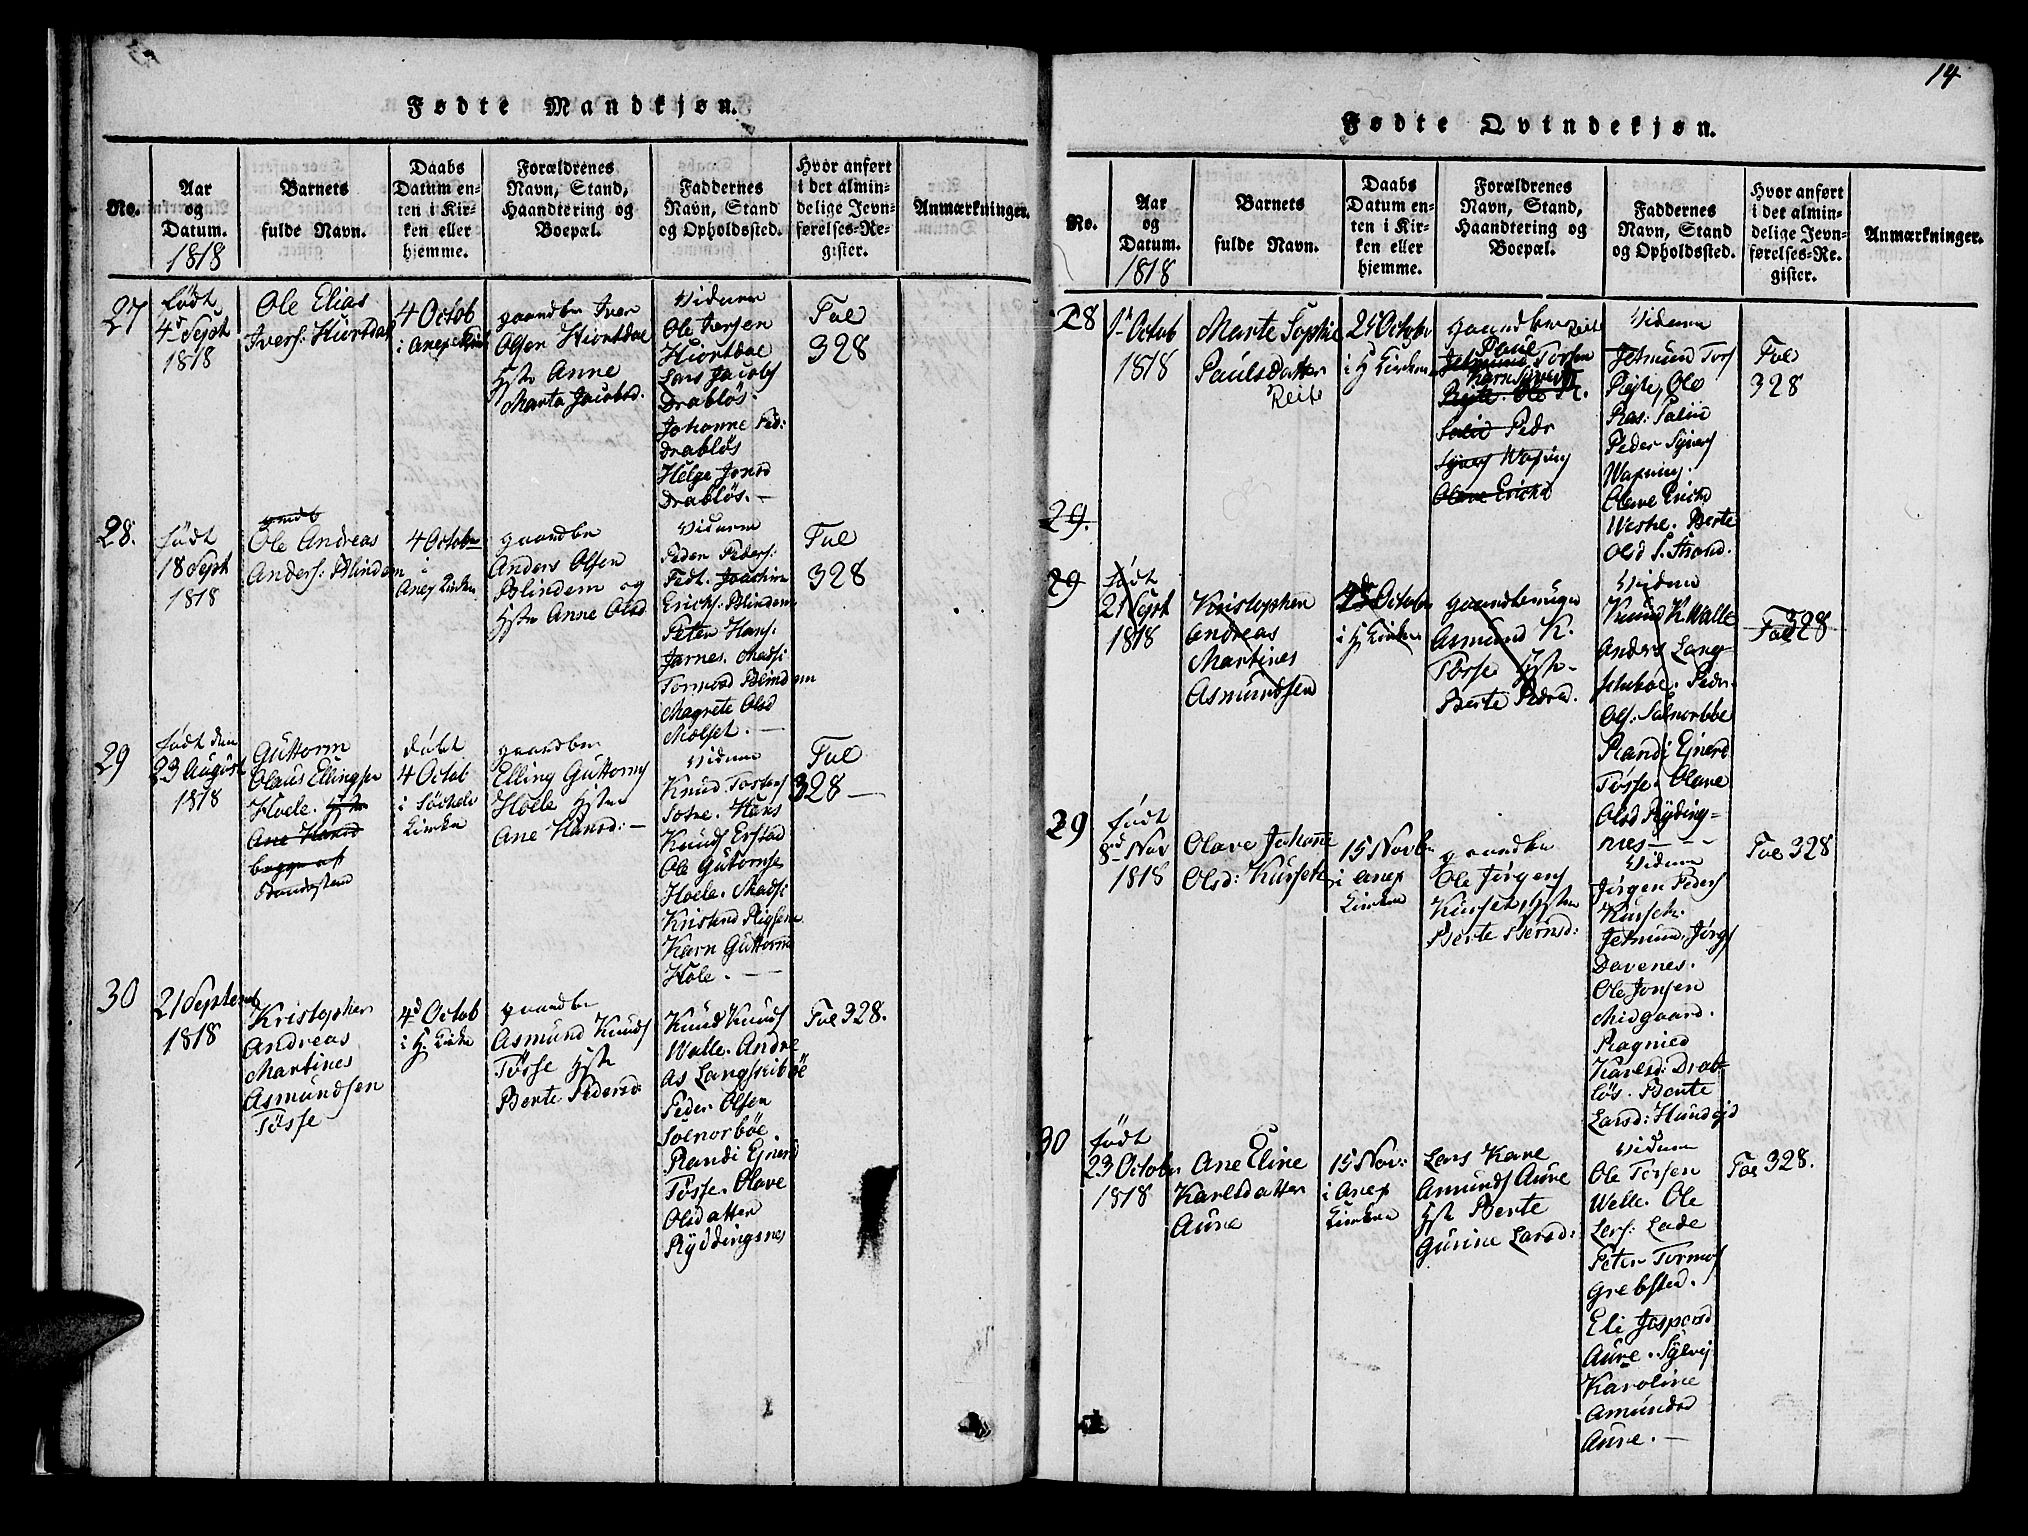 14
Fødte Mandkjøn.
No.
Aar
og
Datum.
1818
Barnets
fulde Navn.
Daabs
Datum en-
ten i Kir-
ken eller
hjemme.
Forældrenes
Navn, Stand,
Haandtering og
Boepæl.
Faddernes
Navn, Stand
og Opholdssted.
Hvor anført
i det almin-
delige Jevn-
førelses-Re-
gister.
Anmærkninger.
27
født
4de Sept
1818
Ole Elias
Ivers: Hiortdal
4 Octob
i Anex Kirk
gaardbr Iver
Olsen Hiortdal
Hstr Anne
Marta Jacobsd.
Vidnem
Ole Iversen
Hiortdal
Lars Jacobs
Drabløs.
Johanne Ped:
Drabløs
Helge Jonsd
Drabløs. —
Fol
328
28.
født
18 Sept
1818
Ole Andreas
Anders: Blindem
4 Octobr
i
Anex Kirken
gaardbr
Anders Olsen
Blindem og
Hstr Anne Olsd
Vidnem
Peder Peders:
Joachim
Erichs: Blindem
Peter Hans:
Jarnes. Madsi
Tormosd Blindem
Magrete Olsd
Molset. —
Fol
328
29
født den
23 August
1818
Guttorm
Olaus Ellingsen
Hoele. Hstr
Ane Hansd
begge af
døbt
4 Octob
i
Kirken
gaardbr
Elling Guttorms
Hoele Hstru
Ane Hansd: —
Vidnem
Knud Tostens
Hans
Knuds Erstad
Ole Guttormse
Hoele. Madsi
Karn Guttorms
Hole. —
Fol
328 —
30
21 September
1818
Kristopher
Andreas
Martines
Asmundsen
Tøsse
4d Octob
i H. Kirke
gaardbr
Asmund Knuds
Tøsse Hstr
Berte Pedersd:
Knud Knuds
Walle. Andre
as Langskibøe
Peder Olsen
Solnorbøe
Randi Ejnersd
Tøsse. Olave
Olsdatter
Ryddingsnes
Fol 328.
Fødte Qvindekjøn.
No.
Aar
og
Datum.
1818
Barnets
fulde Navn.
Daabs
Datum en-
ten i Kir-
ken eller
hjemme.
Forældrenes
Navn, Stand,
Haandtering og
Boepæl.
Faddernes
Navn, Stand
og Opholdssted.
Hvor anført
i det almin-
delige Jevn-
førelses-Re-
gister.
Anmærkninger.
28
1d Octob
1818
Marte Sophie
Paulsdatter
Reite
25 Octobr
i H Kirken
gaardbr Reite
Paul
Jetmund Torsen
Rejte. Ole R.
Peder
Olave Erichsd
Vidnem
Jetmund Tors
Rejte, Ole
Ras:
Peder
Olave Erichsd
Weske. Berte
Olsd S. Strand.
Fol
328
29.
29
født
21 Sept
1818
Kristopher
Andreas
Martines
Asmundsen
Octob
i H Kirken
gaardbruger
Asmund K.
Tøsse Hstr
Berte Pedersd.
Vidnem
Knud K. Walle
Anders Lang-
Peder
Ols: Solnorbøe
Randi Ejnersd
Tøsse. Olave
Olsd Ryding-
nes — — —
Fol 328
29
født
8d Nov
1818
Olave Johanne
Olsd: Kurset
15 Novbr
i Anex
Kirken
gaardbr
Ole Jørgens
Kurset Hstru
Berte Bernsd:
Vidnem
Jørgen Peders
Kurset.
Jetmund Jørgs
Davenes.
Ole Jonsen
Midgaard.
Ragnild
Karlsd: Drab-
løs. Berte
Larsd: Hundejd
Fol 328
30
født
23 Octobr
1818
Ane Eline
Karlsdatter
Aure
15 Nov:
i Anex
Kirken
Lars Kare
Amunds Aure
Hst Berte
Gurine Larsd:
Vidnem
Ole Torsen
Welle. Ole
Lars: Lade
Peter Tormos
Grebsted.
Eli Jespersd
Aure. Sylvij
Karoline
Amundsd
Aure. —
Fol 328.